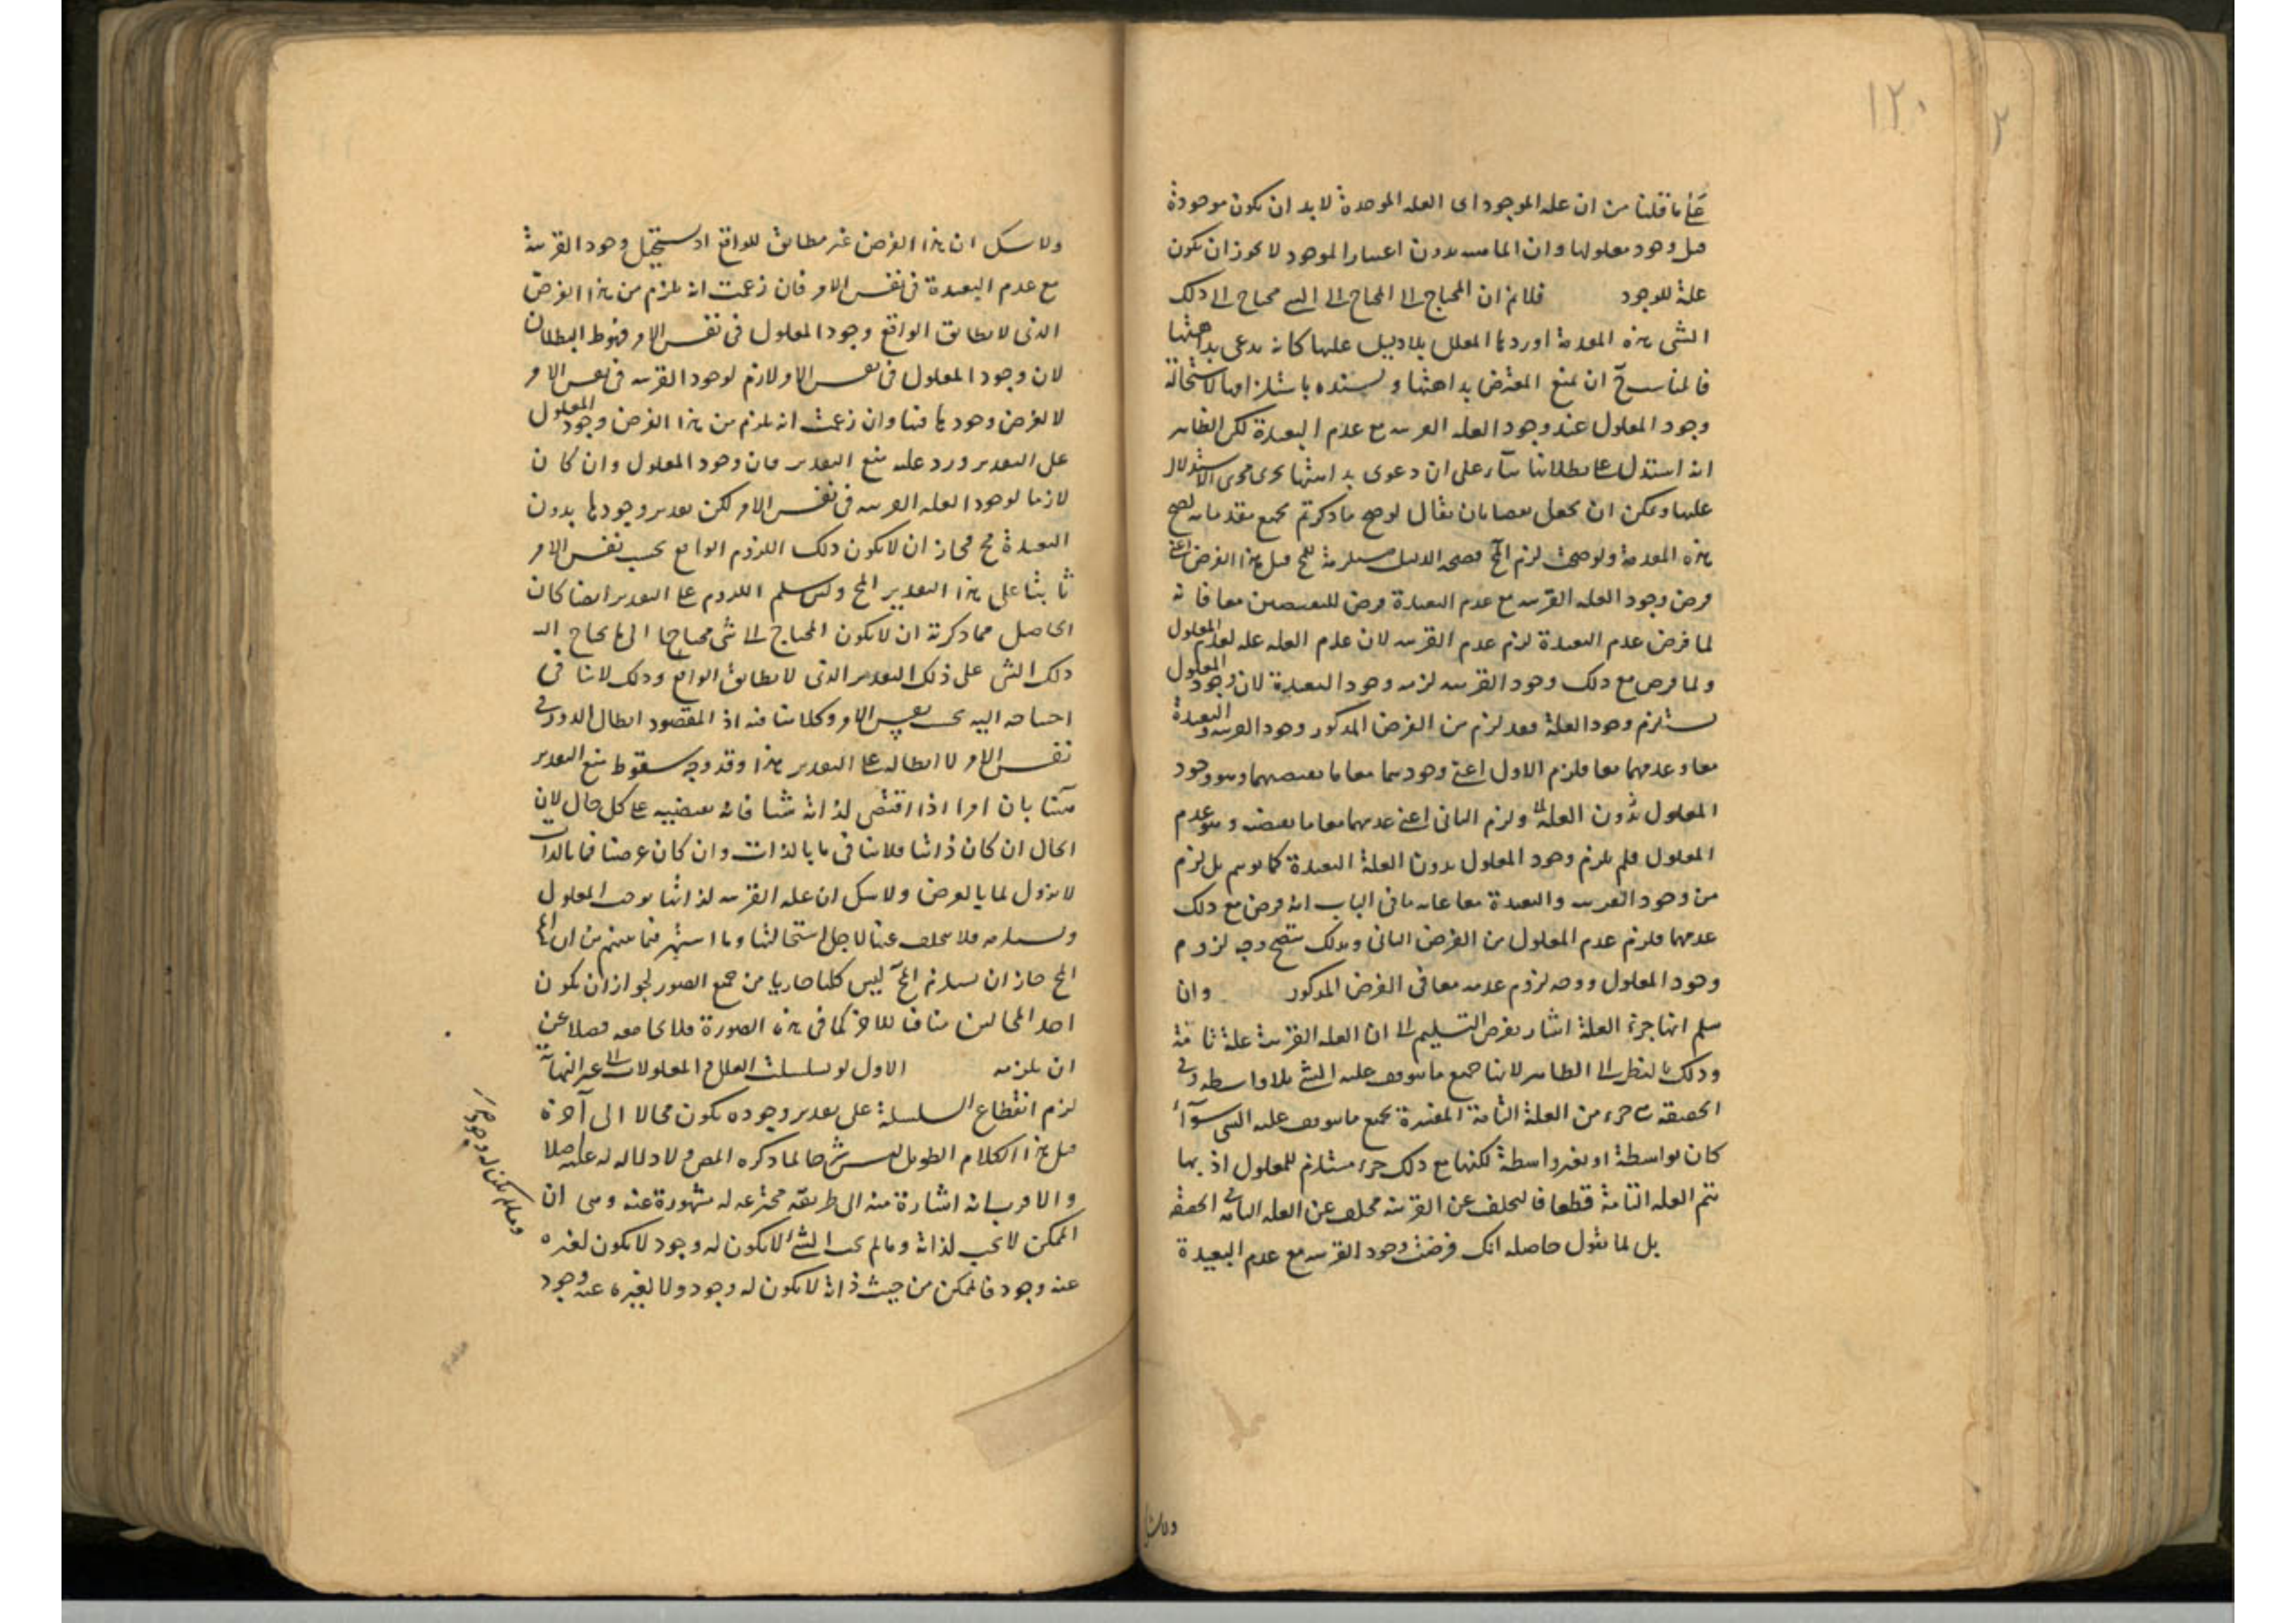 ١٢٠
٢
على ما قلنا من ان علة الموجود اى العلة الموجدة لا بد ان يكون موجودة
قبل وجود معلولها وان الماهية بدون اعتبار الوجود لا يجوز ان يكون
علة للوجود فلانم ان المحتاج الى المحتاج الى الشئ محتاج الى ذلك
الشئ هذه المقدمة اوردها المعلل بلا دليل عليها كانه يدعى بداهتها
فالمناسب ح ان يمنع المعترض بداهتها ويسنده باستلزامها لاستحالة
وجود المعلول عند وجود العلة القريبة مع عدم البعيدة لكن الظاهر
انه استدل على بطلانها بناء على ان دعوى بداهتها يجرى مجرى الاستدلال
عليها ويمكن ان يجعل نقضا بان يقال لو صح ما ذكرتم بجميع مقدماته لصح
هذه المقدمة ولو صحت لزم المح فصحة الدليل مستلزمة للمح قيل هذا الفرض اعنى
فرض وجود العلة القريبة مع عدم البعيدة فرض للنقيضين معا فانه
لما فرض عدم البعيدة لزم عدم القريبة لان عدم العلة علة لعدم المعلول
ولما فرض مع ذلك وجود القريبة لزمه وجود البعيدة لان وجود المعلول
يستلزم وجود العلة فقد لزم من الفرض المذكور وجود القريبة والبعيدة
معا وعدمهما معا فلزم الاول اعنى وجودهما معا ما يقتضيهما وهو وجود
المعلول بدون العلة ولزم الثانى اعنى عدمهما معا ما يقتضيه وهو عدم
المعلول فلم يلزم وجود المعلول بدون العلة البعيدة كما توهم بل لزم
من وجود القريبة والبعيدة معا غاية ما فى الباب انه فرض مع ذلك
عدمهما فلزم عدم المعلول من الفرض الثانى وبذلك يتضح وجه لزوم
وجود المعلول ووجه لزوم عدمه معا فى الفرض المذكور وان
سلم انها جزء العلة اشار بفرض التسليم الى ان العلة القريبة علة تامة
وذلك بالنظر الى الظاهر لانها جميع ما يتوقف عليه الشئ بلا واسطة وفى
الحقيقة هى جزء من العلة التامة المفسرة بجميع ما يتوقف عليه الشئ سواء
كان بواسطة او بغير واسطة لكنها مع ذلك جزء مستلزم للمعلول اذ بها
تتم العلة التامة قطعا فالتخلف عن القريبة تخلف عن العلة التامة فى الحقيقة
بل لما نقول حاصله انك فرضت وجود القريبة مع عدم البعيدة
ولا شك
ولا شك ان هذا الفرض غير مطابق للواقع اذ يستحيل وجود القريبة
مع عدم البعيدة فى نفس الامر فان زعمت انه يلزم من هذا الفرض
الذى لا يطابق الواقع وجود المعلول فى نفس الامر فهو ظ البطلان
لان وجود المعلول فى نفس الامر لازم لوجود القريبة فى نفس الامر
لا لفرض وجودها فيها وان زعمت انه يلزم من هذا الفرض وجود المعلول
على التقدير ورد عليه منع التقدير فان وجود المعلول وان كان
لازما لوجود العلة القريبة فى نفس الامر لكن تقدير وجودها بدون
البعيدة مح فجاز ان لا يكون ذلك اللزوم الواقع بحسب نفس الامر
ثابتا على هذا التقدير المح ولئن سلم اللزوم على التقدير ايضا كان
الحاصل مما ذكرته ان لا يكون المحتاج الى شئ محتاجا الى ما يحتاج اليه
ذلك الشئ على ذلك التقدير الذى لا يطابق الواقع وذلك لا ينافى
احتياجه اليه بحسب نفس الامر وكلامنا فيه اذ المقصود ابطال الدور فى
نفس الامر لا ابطاله على التقدير هذا وقد وجه سقوط منع التقدير
ههنا بان امرا اذا اقتضى لذاته شيئا فانه يقتضيه على كل حال لان
الحال ان كان ذاتيا فلا ينافى ما بالذات وان كان عرضيا فما بالذات
لا يزول لما بالعرض ولا شك ان علة القريبة لذاتها توجب المعلول
وتستلزمه فلا يتخلف عنها لاجل استحالتها وما اشتهر فيما بينهم من ان
المح جاز ان يستلزم المح ليس كليا جاريا من جميع الصور لجواز ان يكون
احد المحالين منافيا للاخر كما فى هذه الصورة فلا يجامعه فضلا عن
ان يلزمه الاول لو تسلسلت العلل والمعلولات الى غير النهاية
لزم انقطاع السلسلة على تقدير وجوده يكون محالا الى آخره
قيل هذا الكلام الطويل ليس شرحا لما ذكره المص ولا دلالة له عليه اصلا
والاقرب انه اشارة منه الى طريقة مخترعة له مشهورة عنه وهى ان
الممكن لا يجب لذاته وما لم يجب الشئ لا يكون له وجود لا يكون لغيره
عنه وجود فالممكن من حيث ذاته لا يكون له وجود ولا لغيره عنه وجود
وما لم يكن له وجود